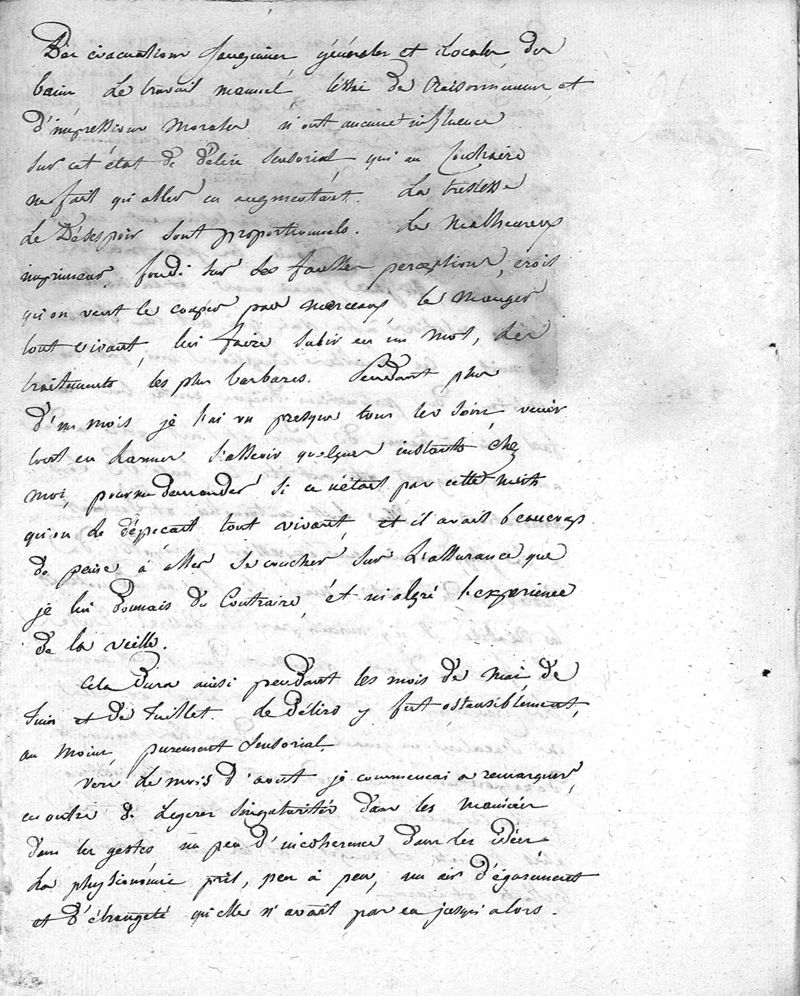 Des évacuations sanguines générales et locales des
bains le travail manuel, l'essai de raisonnemens et
d'impressions morales n'ont aucune influence
sur cet état de délire sensorial qui au contraire
ne fait qu'aller en augmentant. La tristesse
Le Désespoir sont proportionnels. Le malheureux
imprimeur, fondé sur ses fausses perceptions, crois
qu'on veut le couper par morceaux, le manger
tout vivant, lui faire subir en un mot, des
traitements les plus barbares. Pendant plus
d'un mois je l'ai vu presque tous les soirs venir
tout en larmes s'asseoir quelques instants chez
moi, pour me demander si ce n'était pas cette nuit
qu'on le dépeçait tout vivant, et il avait beaucoup
de peine à aller se coucher sur l'assurance que
je lui donnais du Contraire, et malgré l'expérience
de la veille.
Cela dura ainsi pendant les mois de mai de
Juin et de Juillet. le délire y fut ostensiblement,
au moins purement sensorial
Vers le mois d'aout je commencai a remarquer,
en outre de legeres singularités dans les manières
dans les gestes un peu d'incoherence dans les idées
La physionomie prit, peu à peu, un air d'égarement
et d'étrangeté qu'elle n'avait pas eu jusqu'alors.